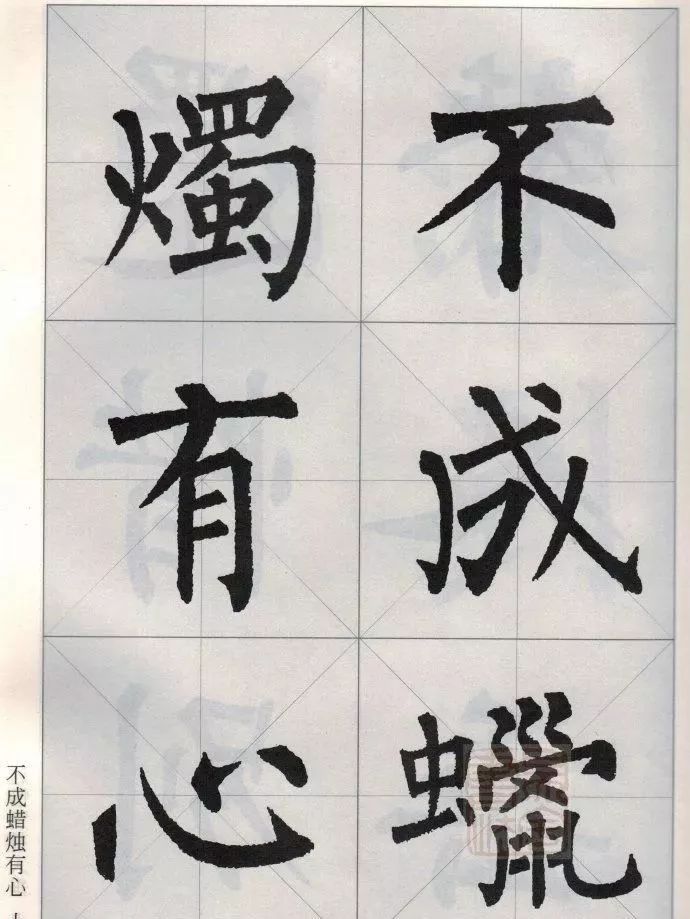 不成蠟
燭有心
不成蜡烛有心